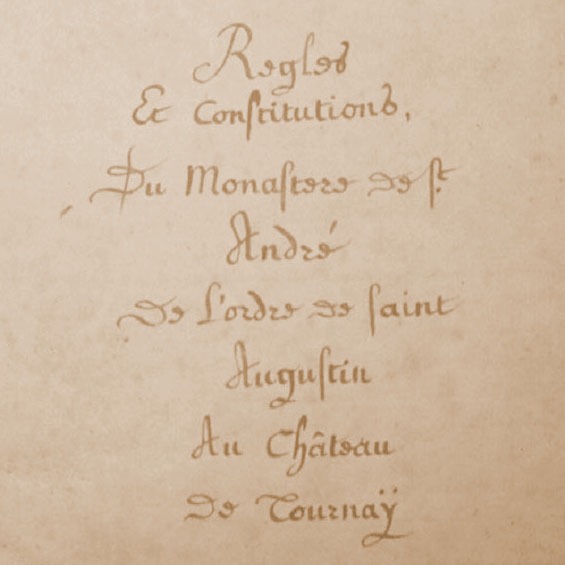 Regles
Et Conſtitutions,
Du Monaſtere de ſt.
André
De L'ordre de ſaint
Auguſtin
Au Château
De Tournaÿ